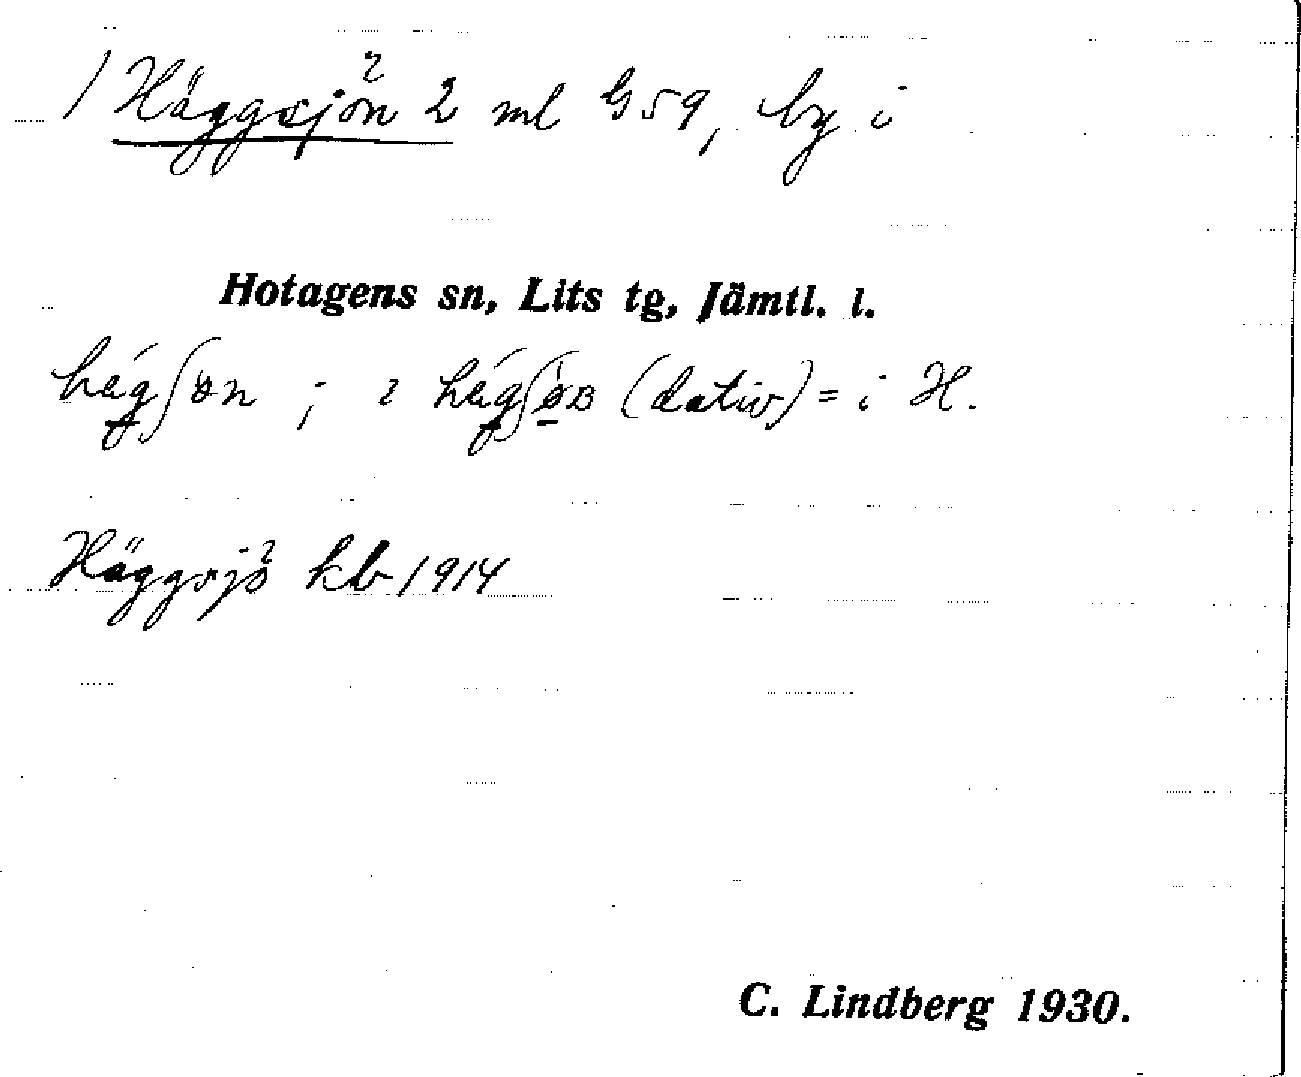 / Häggsjön 2 ml G59, by i
Hotagens sn, Lits tg, Jämtl. l.
(dativ) = i H.
Häggsjö kb 1914
C. Lindberg 1930.